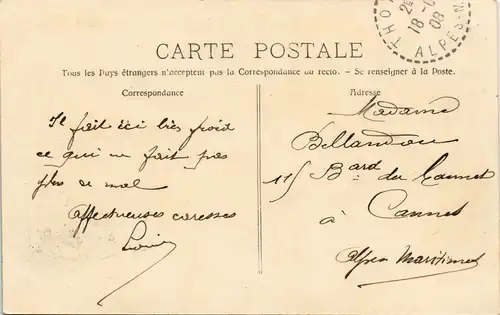 THO
18
08
ALPES-M
CARTE POSTALE
Tous les Pays étrangers n'acceptent pas la Correspondance au recto. – Se renseigner à la Poste.
Correspondance
Adresse
Il fait ici très froid
ce qui ne fait pas
plus de mal
Affectueuses caresses
Louis
Madame
Bellandou
115 Bard du Cannet
à
Cannes
Alpes Maritimes